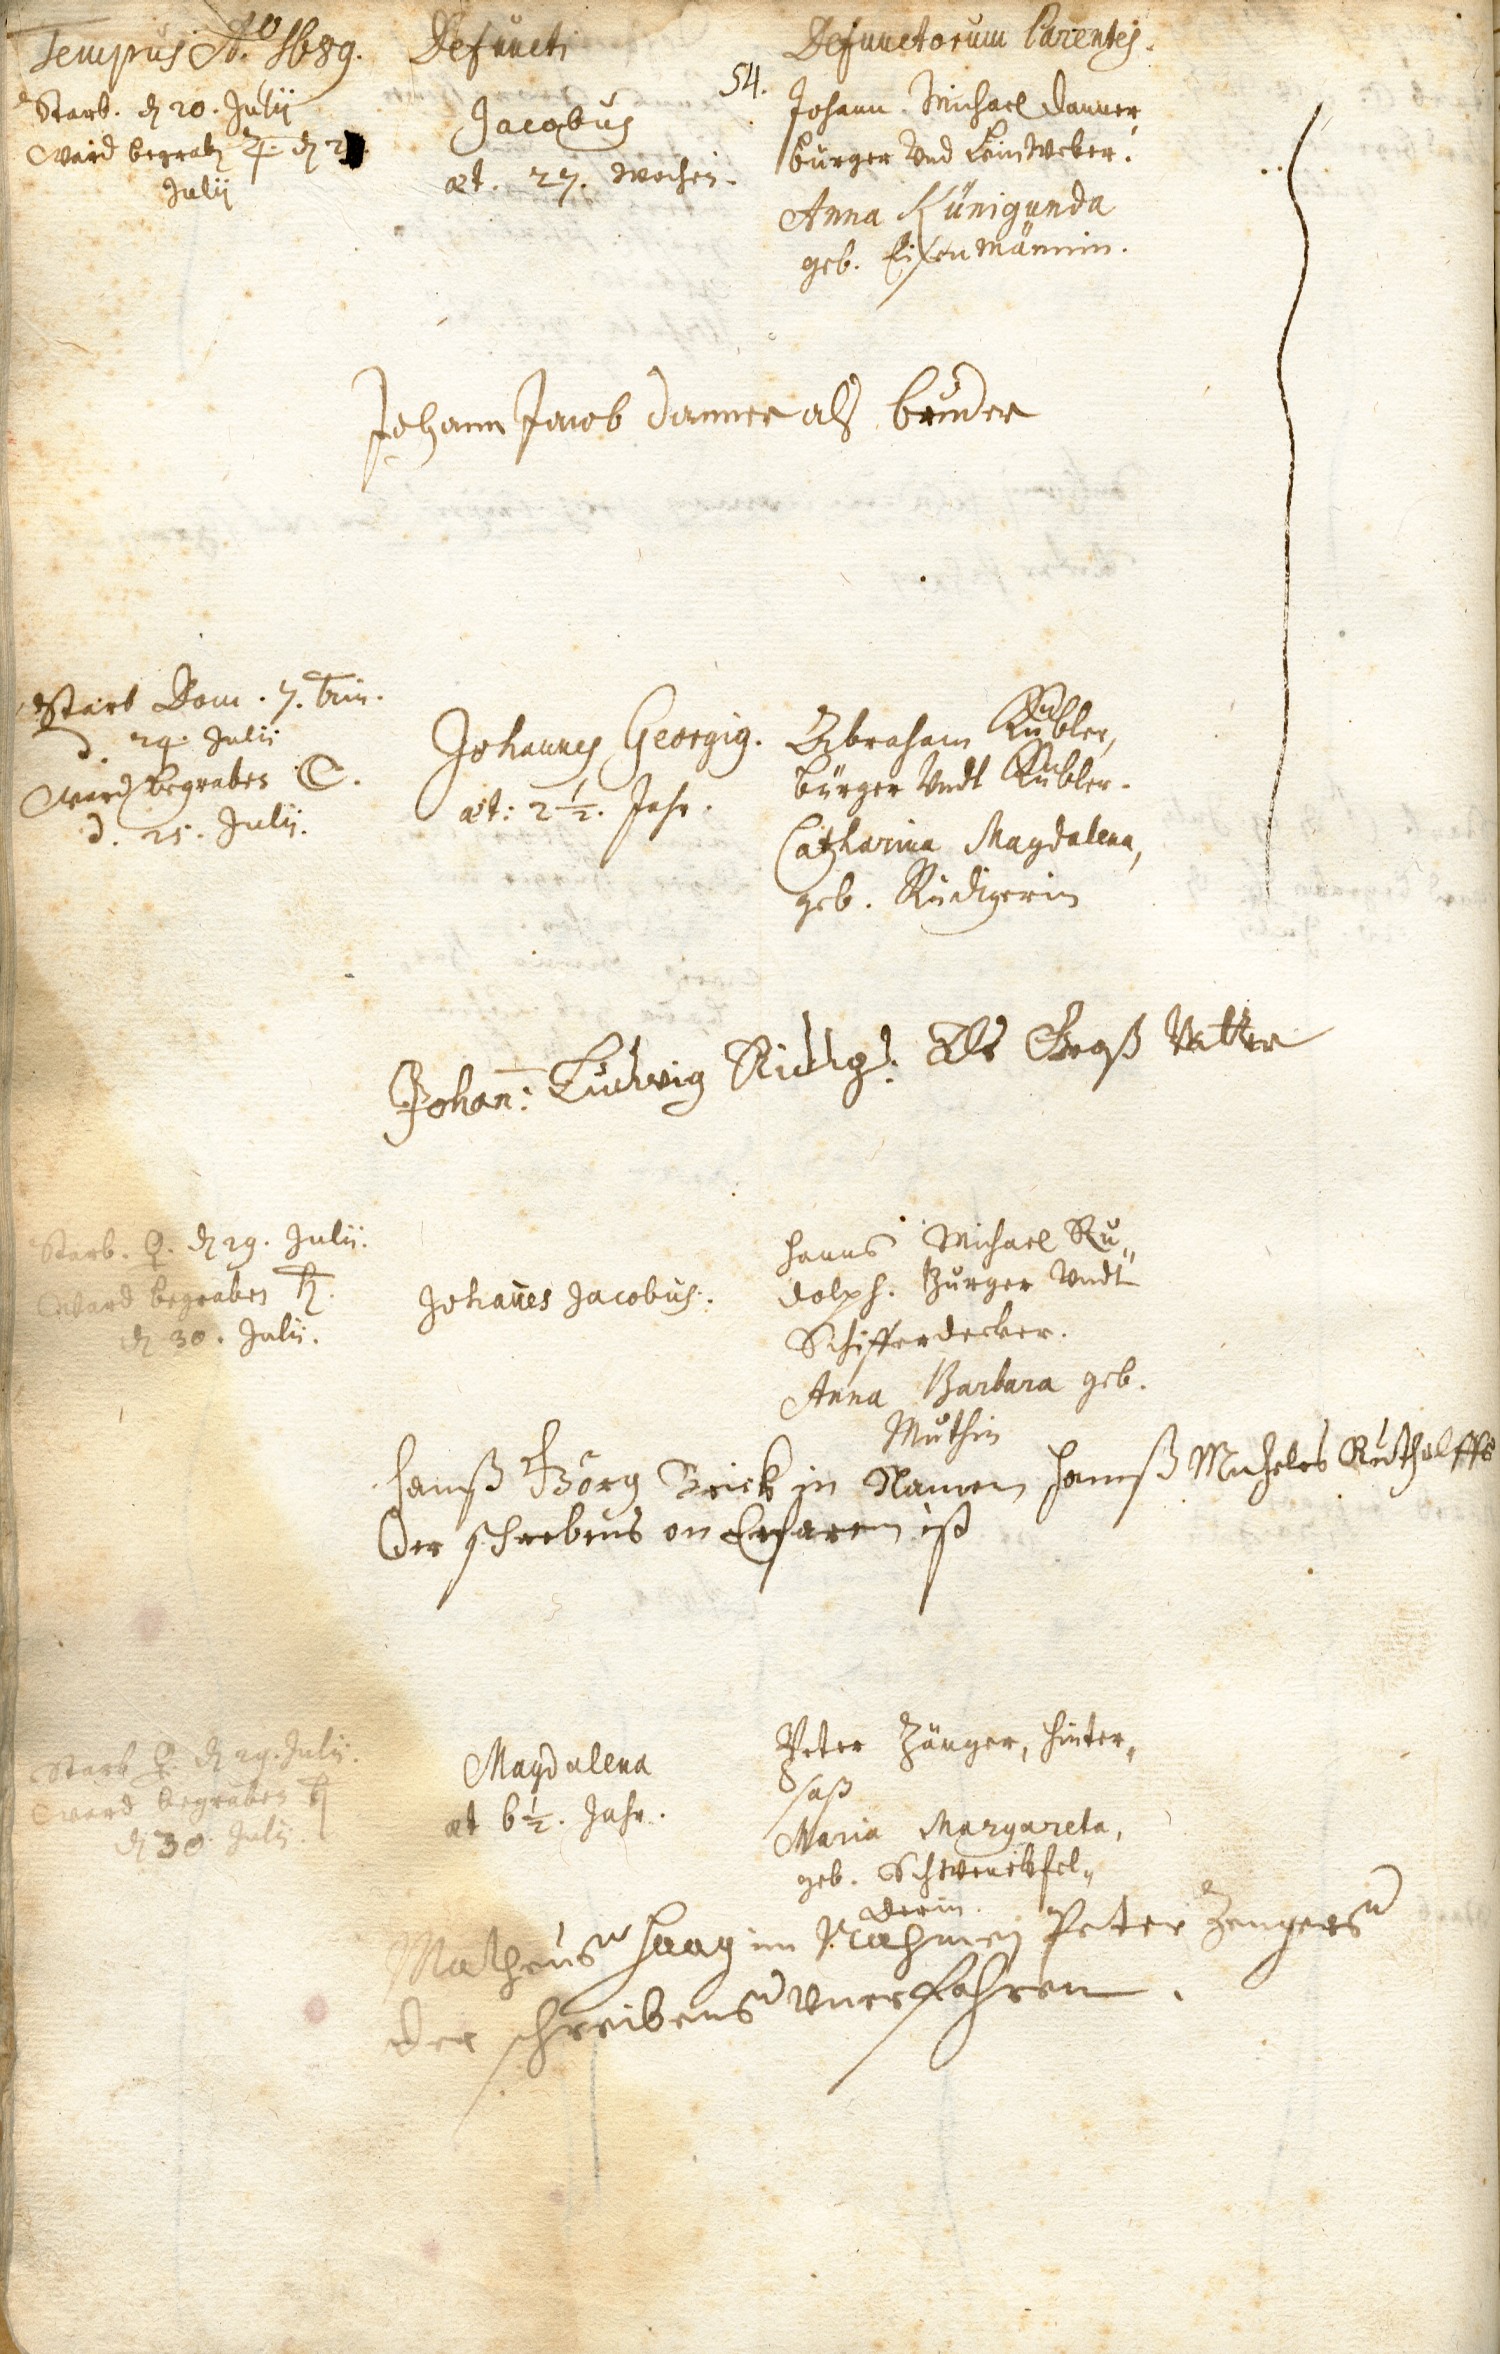 Tempus A.o 1689. Defuncti Defunctorum Parentes.
54.
Starb. d 20. Julii
Ward begrabē ♃. d 2
Julii
Jacobus
æt. 27. Wochen.
Johann Michael Danner
burger Vnd Leinweber.
Anna Künigunda
geb. Eisenmännin.
Johann Jacob danner als bruder
Starb Dom. 7. Trin.
d. 24. Julii
Ward begraben ☾.
d. 25. Julii.
Johannes Georgig.
æt: 2 1/2. Jahr.
Abraham Kübler,
bürger Vndt Kübler.
Catharina Magdalena,
geb. Rüdigerin
Johan: Ludwig Rüdigr: Als Groß Vatter
Starb. ♀. d 29. Julii.
Ward begraben ♄.
d 30. Julii.
Johañes Jacobus.
Hanns Michael Ru„
dolph. Burger Vndt
Schifferdecker.
Anna Barbara geb.
Muthin
Hanß Görg Brick in Namen Hanß Micheles Rudtholffs
Der schrebens on Erfaren ist
Starb ♀. d 29. Julii.
Ward begraben ♄
d 30. Julii.
Magdalena
æt 6 1/2. Jahr.
Peter Zänger, Hinter„
saß
Maria Margareta,
geb. Schwenckfel„
derin.
Matheus Haag im Nahmen Peter Zengers
der schreibens Vnerfahren.